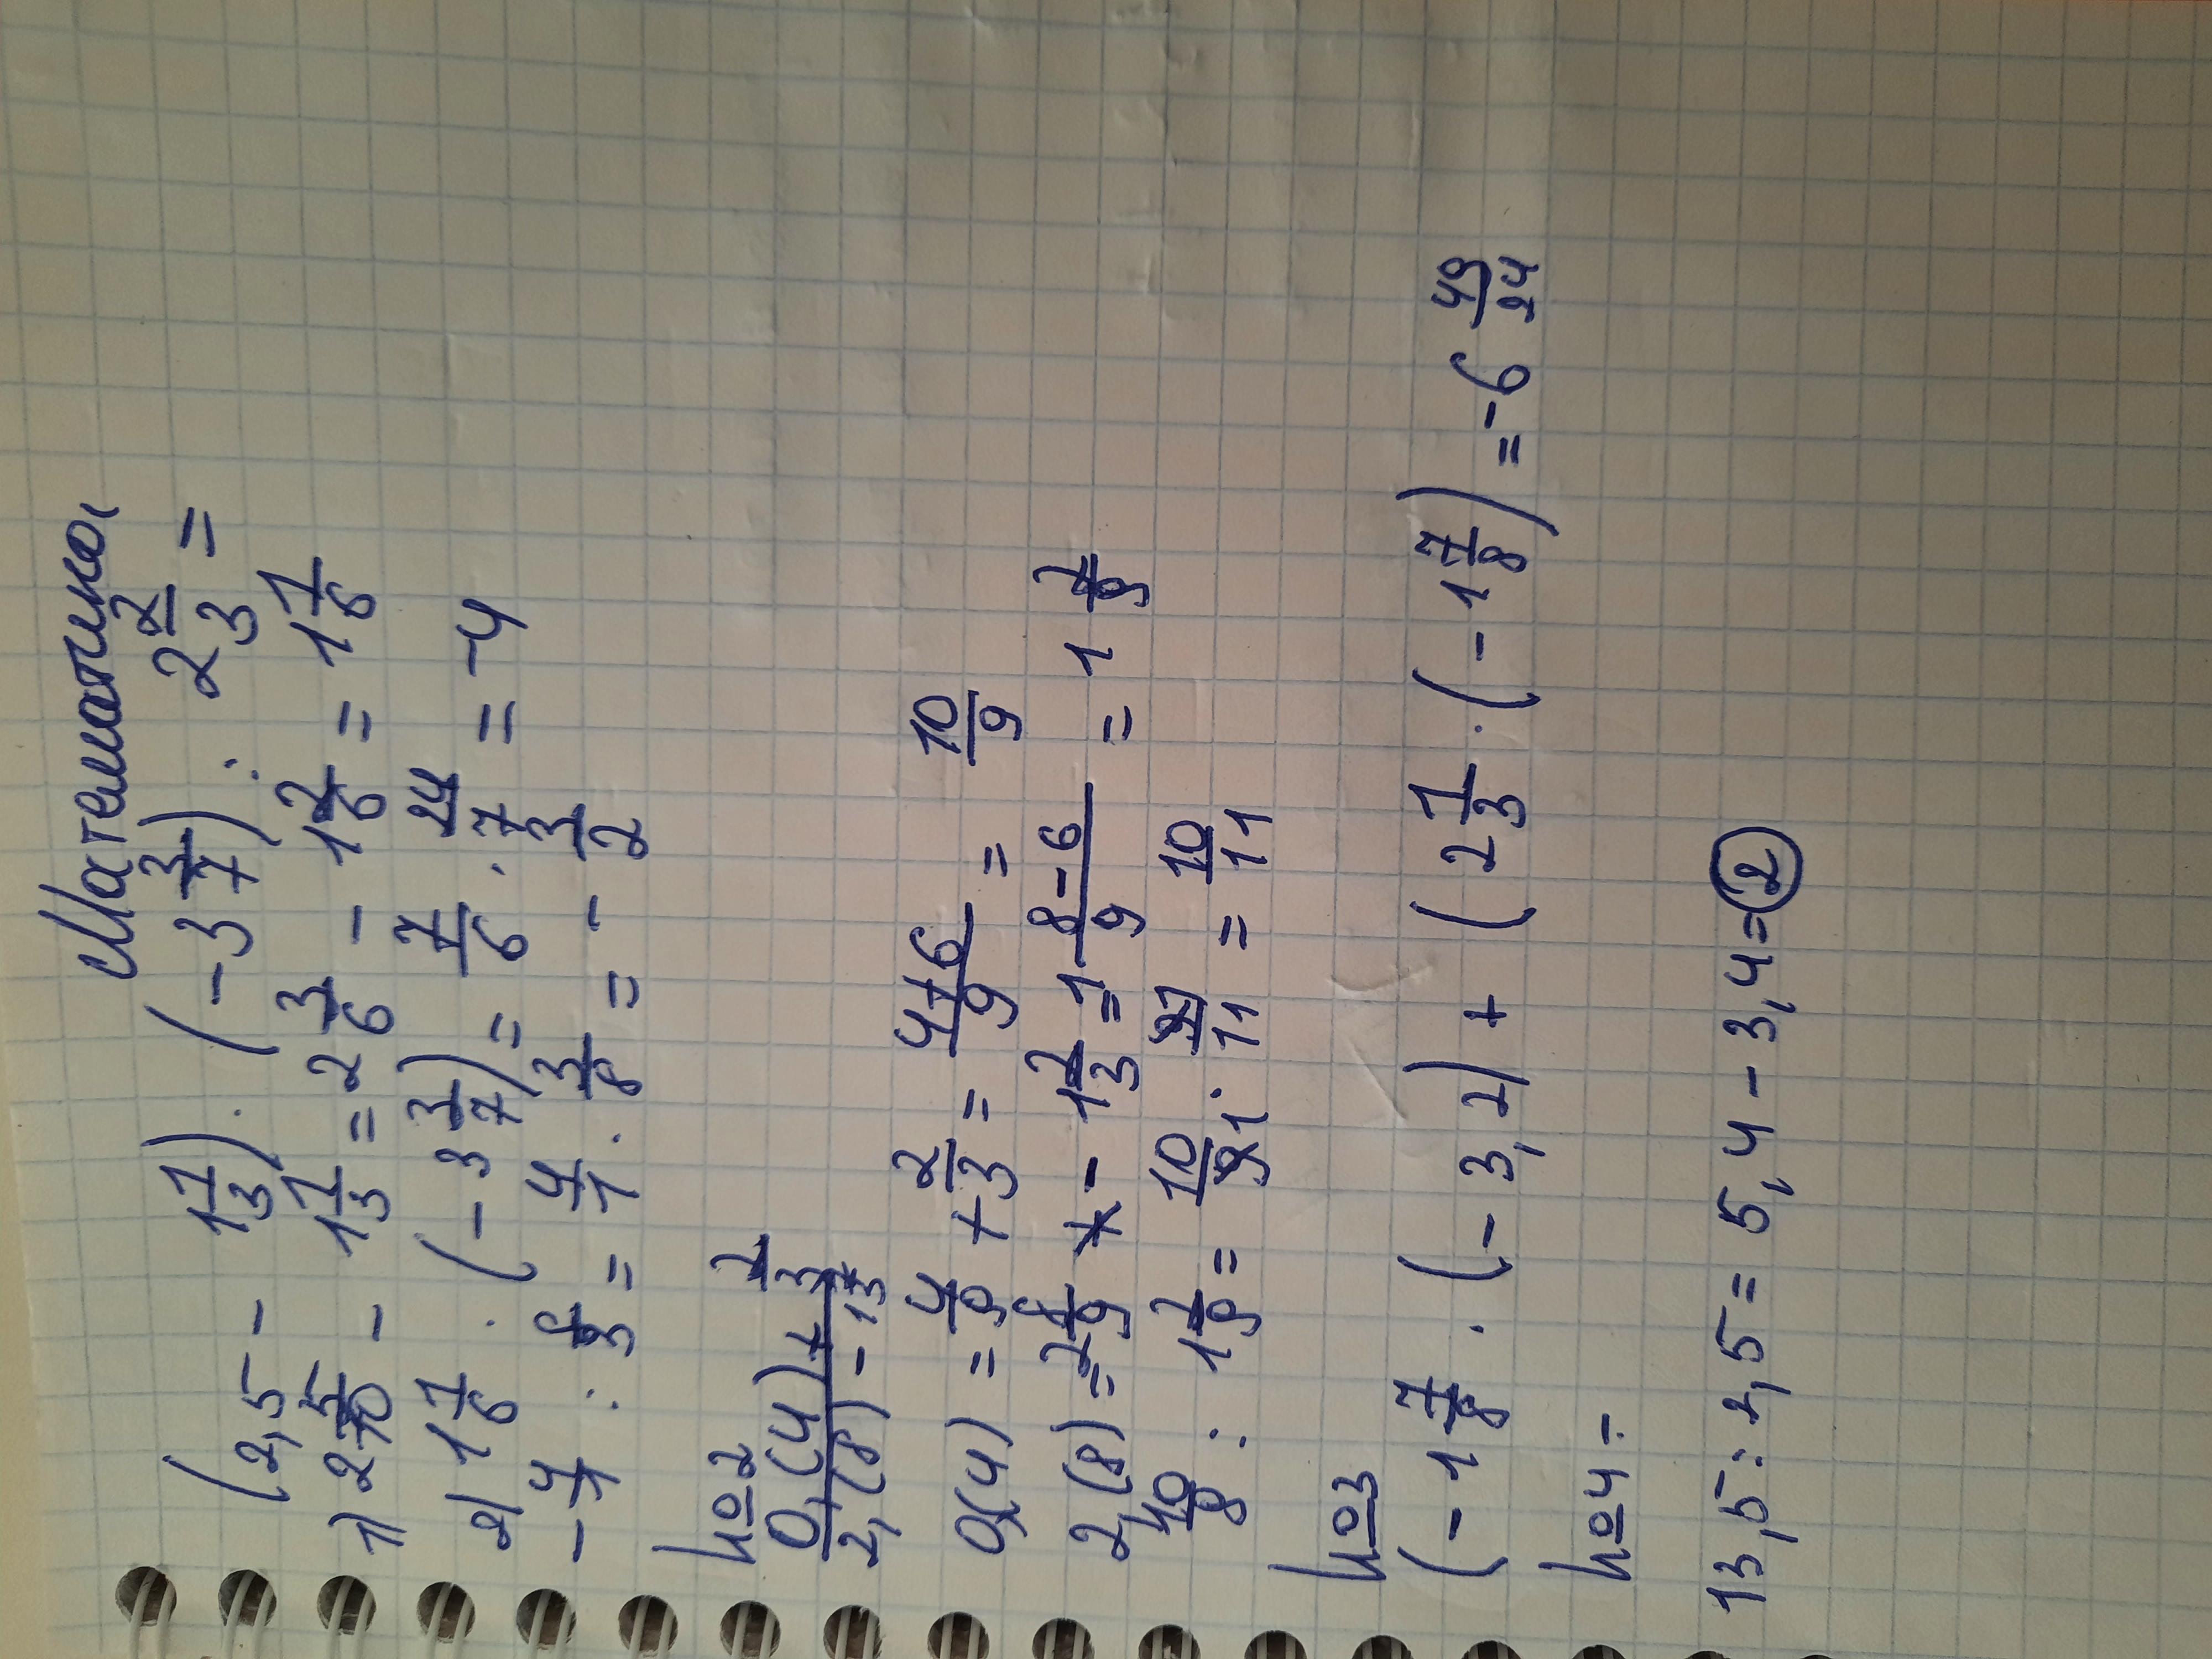 Математика
(2,5 - 1 1/3) · (-3 3/7) : 2 2/3 =
1) 2 5/10 - 1 1/3 = 2 3/6 - 1 2/6 = 1 1/6
2) 1 1/6 · (-3 3/7) = 7/6 · 24/7 = -4
- 4/1 : 8/3 = 4/1 · 3/8 = - 3/2
№2
0,(4) + 2/3
2,(8) - 1 2/3
0,(4) = 4/9 + 2/3 = 4+6/9 = 10/9
2,(8) = 2 8/9 - 1 2/3 = 1 8-6/9 = 1 2/9
10/9 : 1 2/9 = 10/9 · 9/11 = 10/11
№3
(-1 7/8 · (-3,2) + (2 1/3 · (-1 7/8) = -6 49/24
№4
13,5 : 2,5 = 5,4 - 3,4 = 2